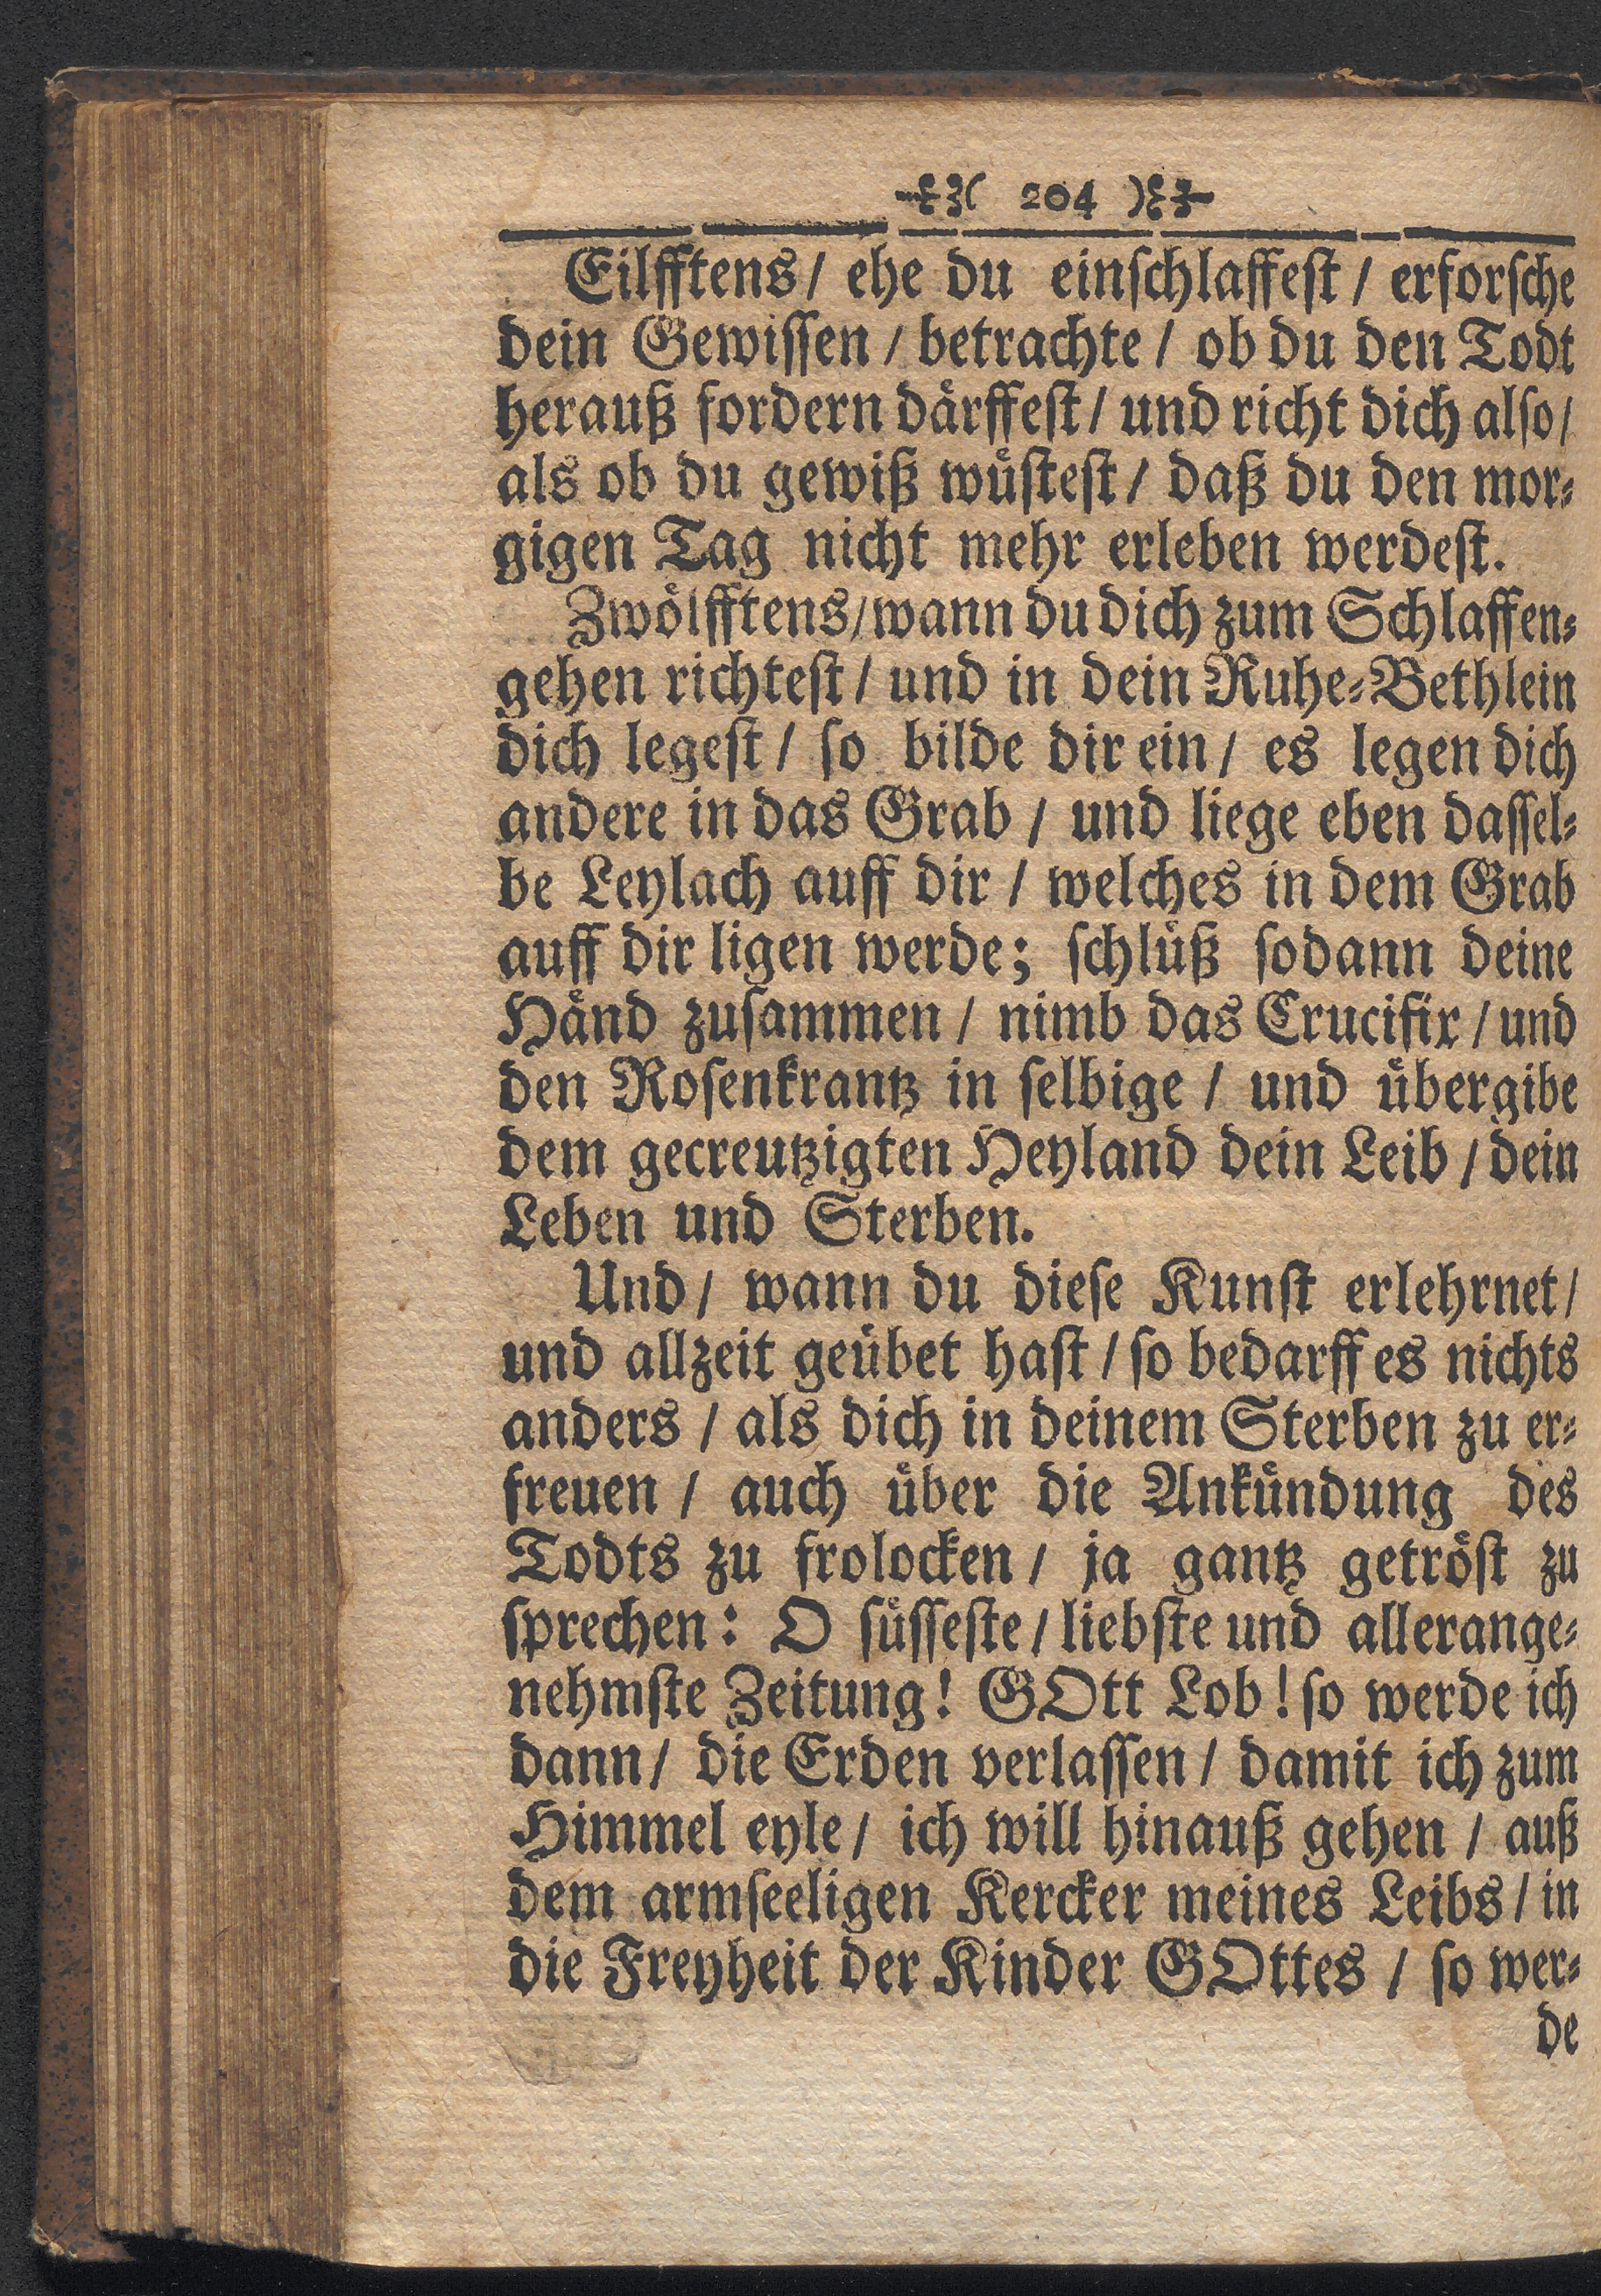 ( 204 )
Eilfftens / ehe du einſchlaffeſt / erforſche
dein Gewiſſen / betrachte / ob du den Todt
herauß fordern därffeſt / und richt dich alſo /
als ob du gewiß wüſteſt / daß du den mor⸗
gigen Tag nicht mehr erleben werdeſt.
Zwölfftens / wann du dich zum Schlaffen⸗
gehen richteſt / und in dein Ruhe⸗Bethlein
dich legeſt / ſo bilde dir ein / es legen dich
andere in das Grab / und liege eben daſſel⸗
be Leylach auff dir / welches in dem Grab
auff dir ligen werde; ſchlüß ſodann deine
Händ zuſammen / nimb das Crucifix / und
den Roſenkrantz in ſelbige / und übergibe
dem gecreutzigten Heyland dein Leib / dein
Leben und Sterben.
Und / wann du dieſe Kunſt erlehrnet /
und allzeit geübet haſt / ſo bedarff es nichts
anders / als dich in deinem Sterben zu er⸗
freuen / auch über die Ankündung des
Todts zu frolocken / ja gantz getröſt zu
ſprechen: O ſüſſeſte / liebſte und allerange⸗
nehmſte Zeitung! GOtt Lob! ſo werde ich
dann / die Erden verlaſſen / damit ich zum
Himmel eyle / ich will hinauß gehen / auß
dem armſeeligen Kercker meines Leibs / in
die Freyheit der Kinder GOttes / ſo wer⸗
de